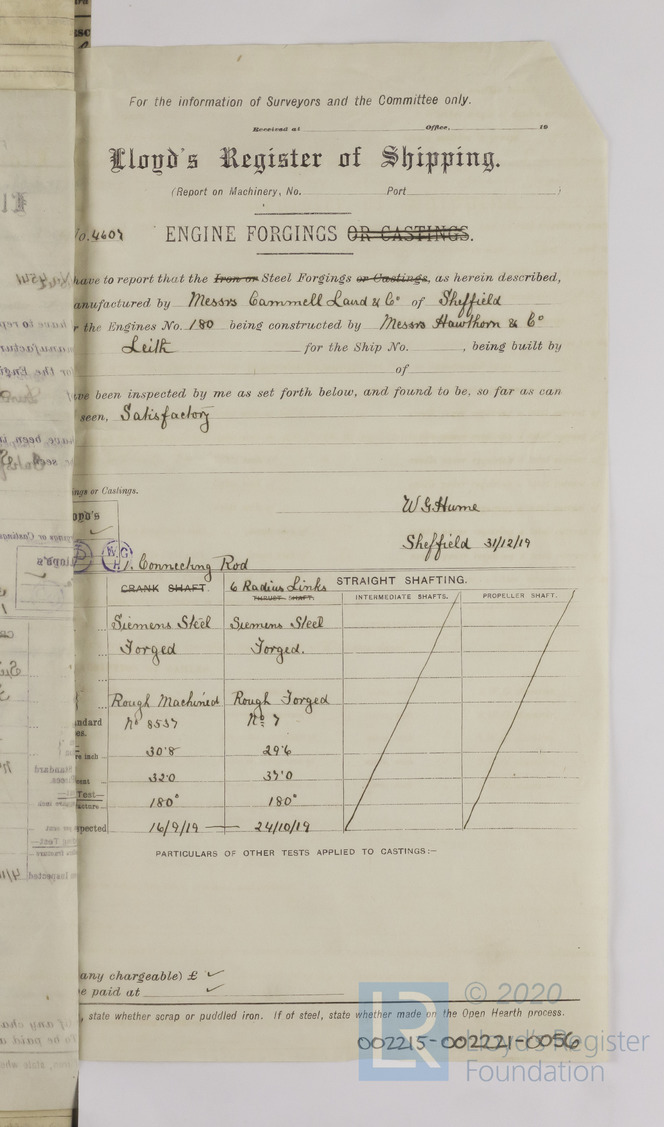 For the information of Surveyors and the Committee only.
Received at Office, 19
Lloyd's Register of Shipping.
(Report on Machinery, No. Port )
No. 4607 ENGINE FORGINGS OR CASTINGS.
have to report that the Iron or Steel Forgings or Castings, as herein described,
anufactured by Messrs Cammell Laird & Co of Sheffield
r the Engines No. 180 being constructed by Messrs Hawthorn & Co
Leith for the Ship No. , being built by
of
ve been inspected by me as set forth below, and found to be, so far as can
seen, Satisfactory
ings or Castings.
oyd's
W.G. Hume
Sheffield 31/12/19
W.G
H
1. Connecting Rod
CRANK SHAFT. 6 Radius Links STRAIGHT SHAFTING.
THRUST SHAFT. INTERMEDIATE SHAFTS. PROPELLER SHAFT.
Siemens Steel Siemens Steel
Forged Forged.
Rough Machined Rough Forged
ndard No 8537 No 7
es.
re inch 30.8 29.6
ent 32.0 37.0
Test— 180° 180°
acture
pected 16/9/19 — 24/10/19
PARTICULARS OF OTHER TESTS APPLIED TO CASTINGS:—
any chargeable) £ ✓
e paid at ✓
, state whether scrap or puddled iron. If of steel, state whether made on the Open Hearth process.
LR © 2020
Lloyd's Register
Foundation
002215-002221-0056